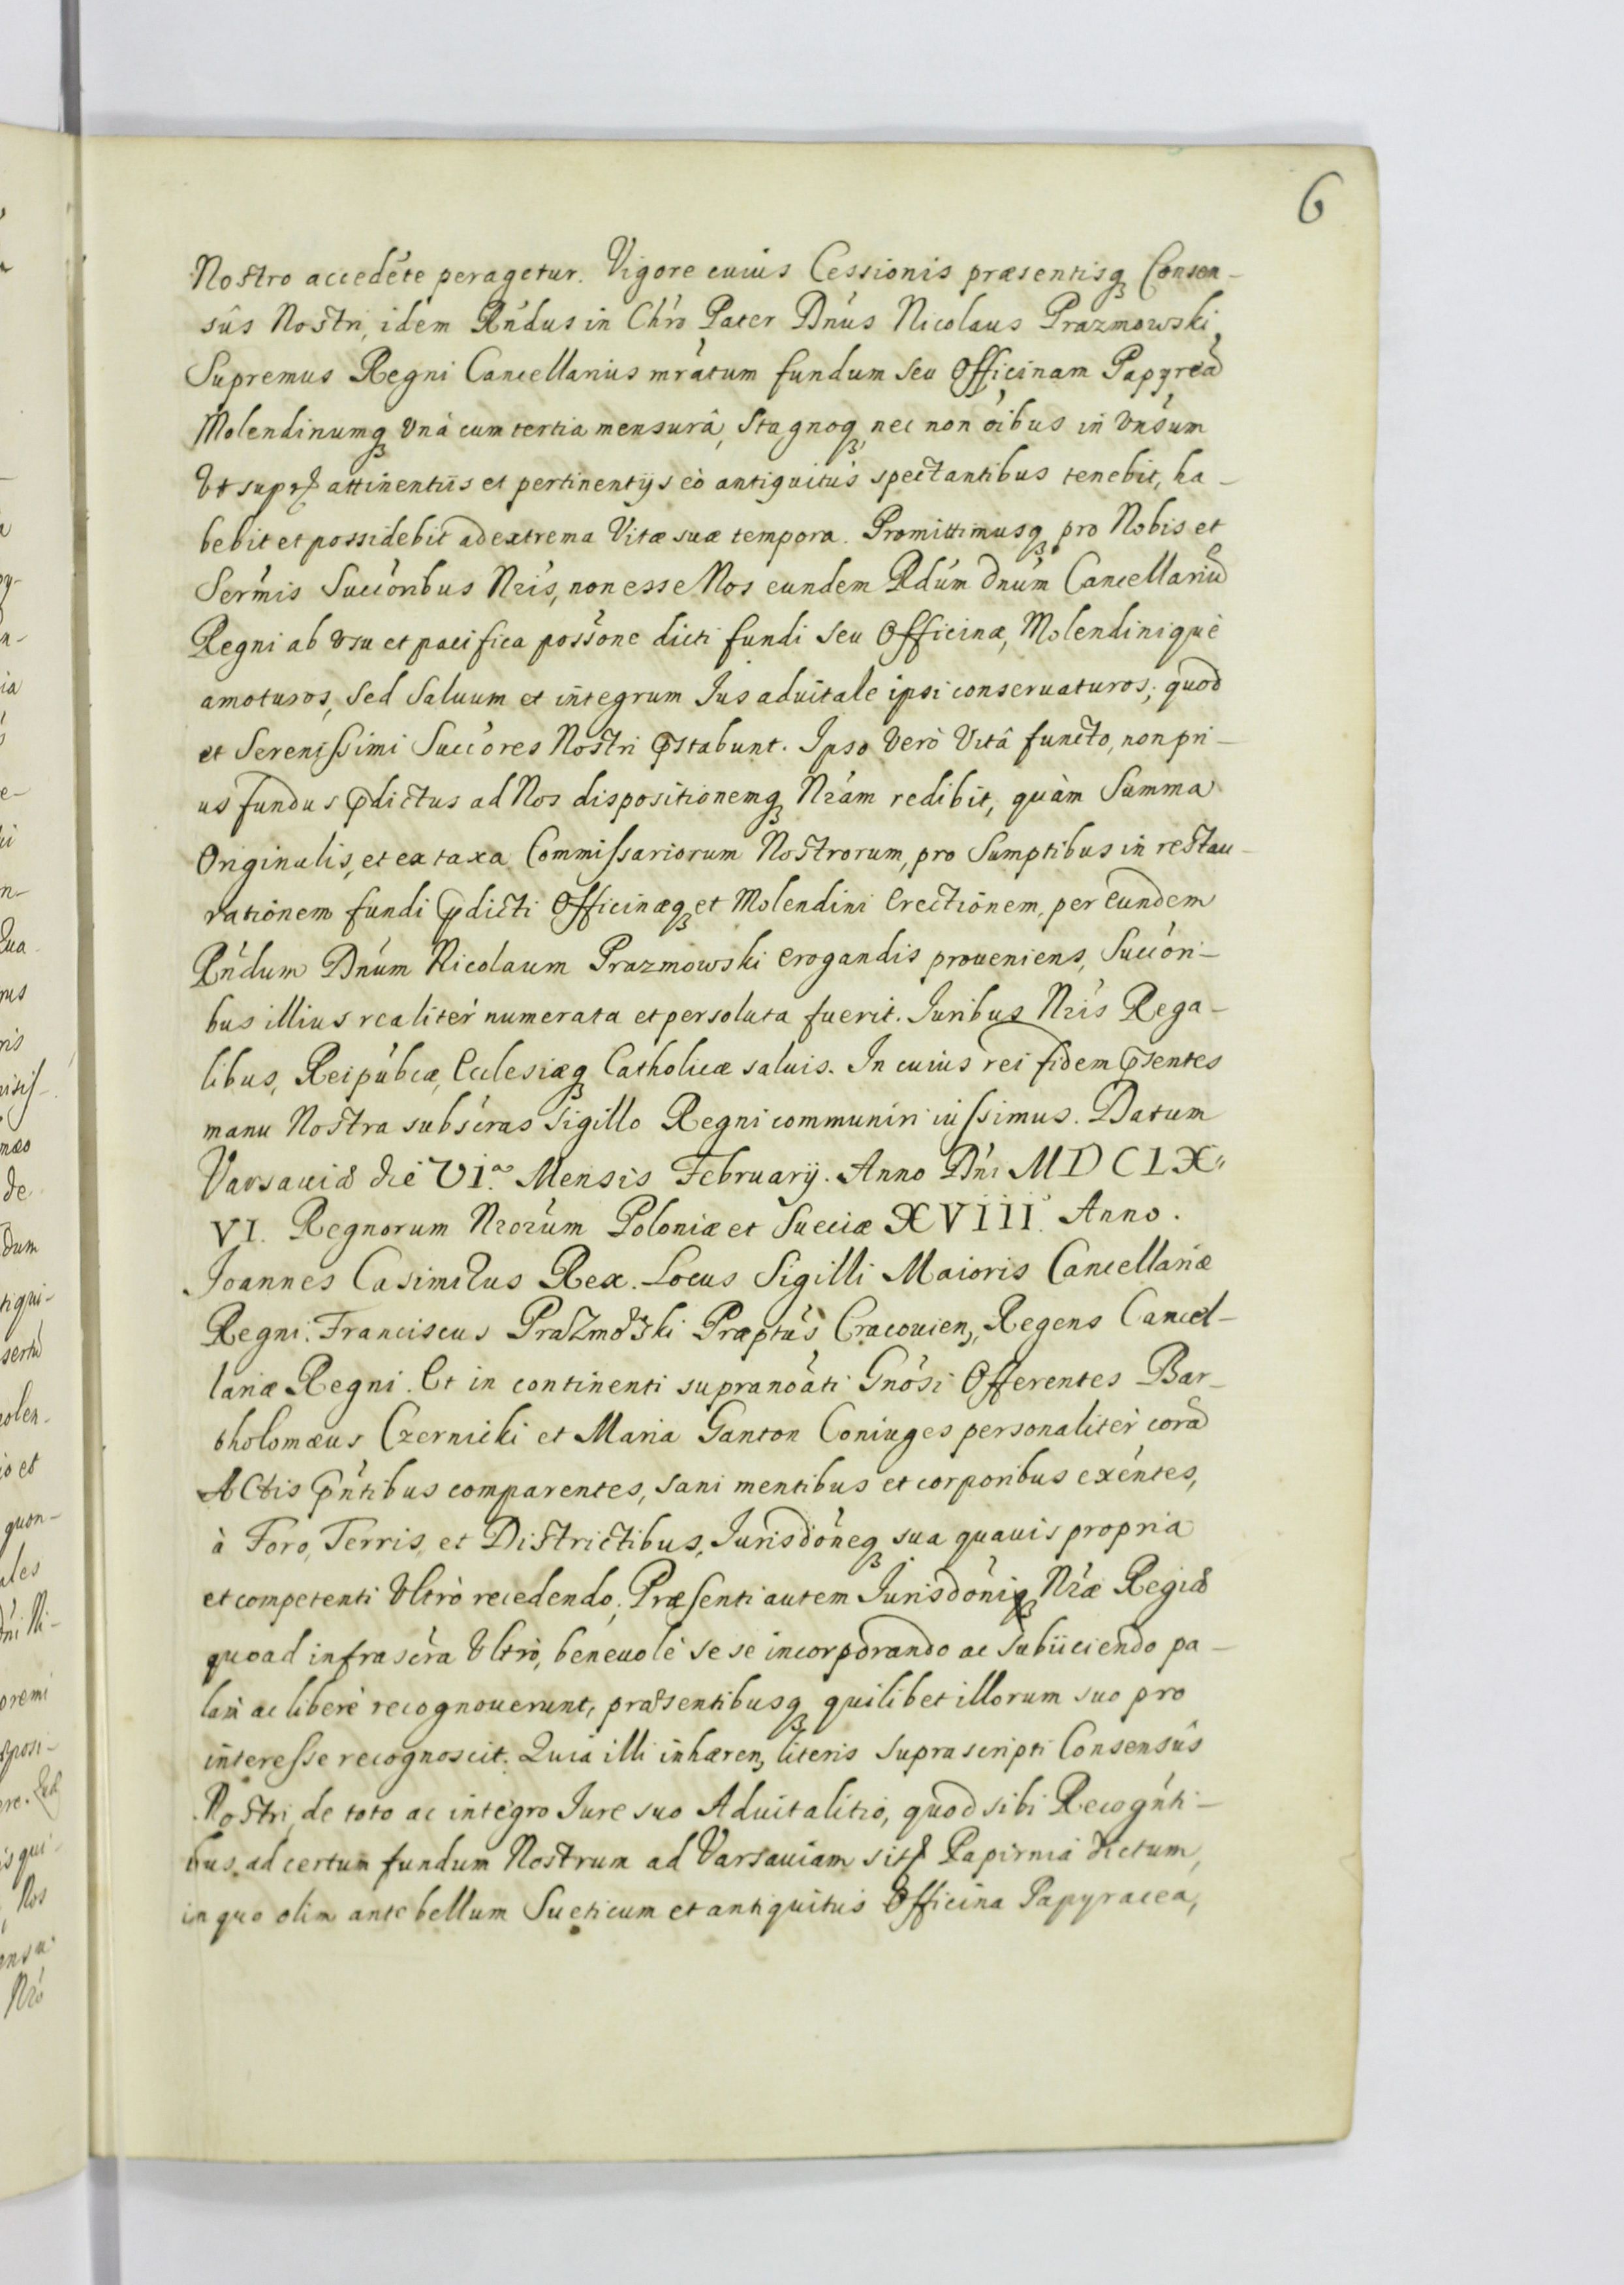 6
Nostro accedéte peragetur. Vigore cuius Cessionis præsentisq₃ Consen-
sûs Nostri, idem Rńdus in Chŕo Pater Dńus Nicolaus Prazmowski,
Supremus Regni Cancellarius mŕatum fundum seu Officinam Papyreã
Molendinumq₃ Vnà cum tertia mensurâ, Stagnoq₃, nec non óibus in Vńsum
Vt supr attinentiis et pertinentijs eò antiquitùs spectantibus tenebit, ha-
bebit et possidebit ad extrema Vitæ suæ tempora. Promittimusq₃ pro Nobis et
Serḿis Succóribus Nŕis, non esse Nos eundem Rdúm dnúm Cancellariũ
Regni ab Vsu et pacifica possòne dicti fundi seu Officinæ, Molendinique
amoturos, Sed Saluum et integrum Jus aduitale ipsi conseruaturos; quod
et Serenissimi Succóres Nostri p̃stabunt. Ipso Verò Vitâ functo, non pri-
us fundus p̃dictus ad Nos dispositionemq₃ Nŕam redibit, quàm Summa
Originalis, et ex taxa Commissariorum Nostrorum, pro Sumptibus in restau-
rationem fundi p̃dicti Officinæq₃ et Molendini Erectionem, per Eundem
Rńdum Dnúm Nicolaum Prazmowski erogandis proueniens, Succóri-
bus illius realitèr numerata et persoluta fuerit. Juribus Nŕis Rega-
libus, Reipúbcæ, Ecclesiæq₃ Catholicæ saluis. In cuius rei fidem p̃sentes
manu Nostra subscŕas Sigillo Regni communiri iussimus. Datum
Varsauiæ die VIᵃ. Mensis February. Anno Dńi MDCLX"
VI. Regnorum Nŕorum Poloniæ et Sueciæ XVIII. Anno.
Joannes Casimirus Rex. Locus Sigilli Maioris Cancellariæ
Regni. Franciscus Prazmowski Præptùs Cracouien, Regens Cancel-
lariæ Regni. Et in continenti supranoáti Gnósi Offerentes Bar-
tholomæus Czernicki et Maria Ganton Coniuges personalitèr corã
Actis p̃ńtibus comparentes, sani mentibus et corporibus exéntes,
à Foro, Terris, et Districtibus, Jurisdóneq₃ sua quauis propria
et competenti Vltrò recedendo, Præsenti autem Jurisdóniq₃ Nŕæ Regiæ
quoad infrascŕa Vltrò, beneuolè sese incorporando ac Subiiciendo pa-
lam ac liberè recognouerunt, præsentibusq₃ quilibet illorum suo pro
interesse recognoscit. Quia illi inhæren, literis suprascripti Consensûs
Nostri, de toto ac integro Jure suo Aduitalitio, quod sibi Recogńti-
bus ad certum fundum Nostrum ad Varsauiam sit Papirnia dictum,
in quo olim ante bellum Sueticum et antiquitùs Officina Papyracea,